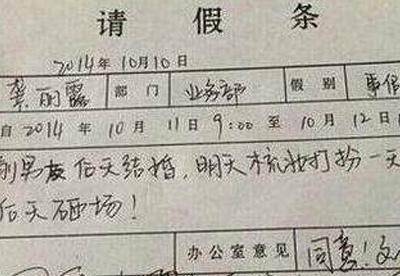 请假条
2014年10月10日
龚丽露 部门 业务部 假别 事假
自2014年10月11日9:00至10月12日
前男友后天结婚，明天梳妆打扮一天
后天砸场！
办公室意见 同意！